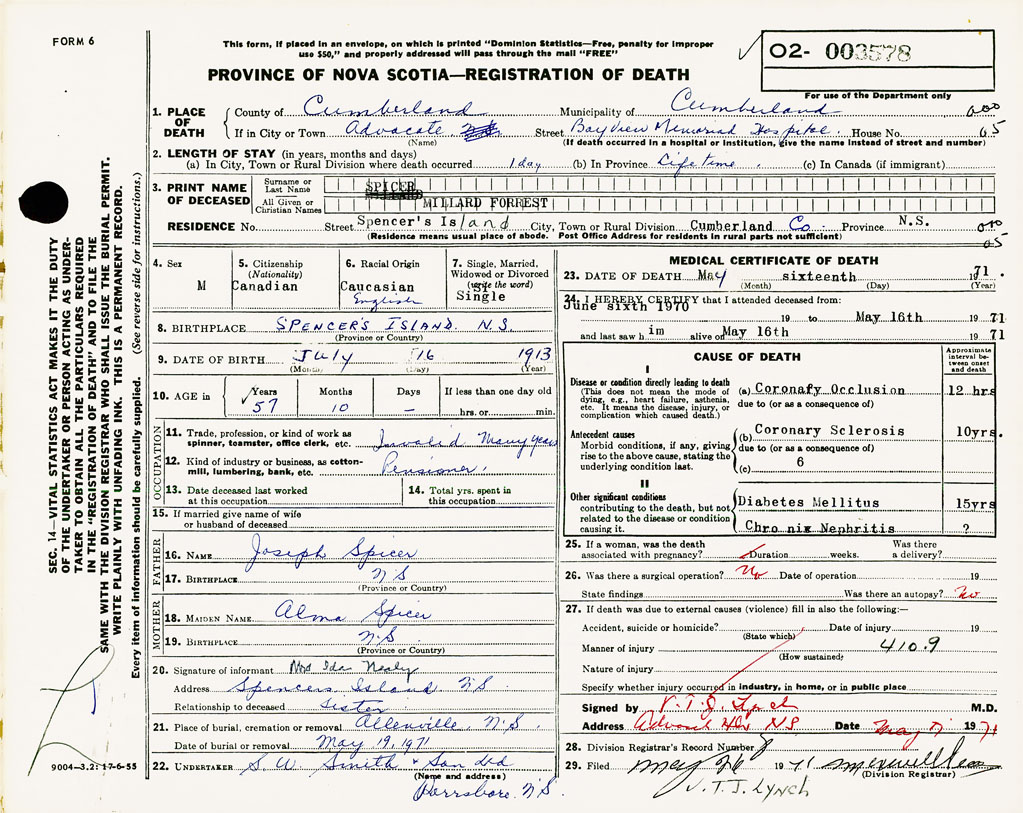 FORM 6
This form, if placed in an envelope, on which is printed "Dominion Statistics—Free, penalty for improper
use $50," and properly addressed will pass through the mail "FREE"
O2- 003578
PROVINCE OF NOVA SCOTIA—REGISTRATION OF DEATH
For use of the Department only
1. PLACE OF DEATH County of Cumberland Municipality of Cumberland
If in City or Town Advocate Street Bay View Memorial Hospital House No. 05
(Name) (If death occurred in a hospital or institution, give the name instead of street and number)
2. LENGTH OF STAY (in years, months and days)
(a) In City, Town or Rural Division where death occurred 1 day (b) In Province Life time (c) In Canada (if immigrant)
3. PRINT NAME OF DECEASED Surname or Last Name SPICER
All Given or Christian Names MILLARD FORREST
RESIDENCE No. Street Spencer's Island City, Town or Rural Division Cumberland Co. Province N.S.
(Residence means usual place of abode. Post Office Address for residents in rural parts not sufficient)
05
4. Sex M
5. Citizenship (Nationality) Canadian
6. Racial Origin Caucasian English
7. Single, Married, Widowed or Divorced (write the word) Single
8. BIRTHPLACE SPENCER'S ISLAND. N.S.
(Province or Country)
9. DATE OF BIRTH July 16 1913
(Month) (Day) (Year)
10. AGE in Years 57 Months 10 Days – If less than one day old
hrs. or min.
OCCUPATION
11. Trade, profession, or kind of work as
spinner, teamster, office clerk, etc. Invalid Many years
12. Kind of industry or business, as cotton-
mill, lumbering, bank, etc. Pensioner.
13. Date deceased last worked
at this occupation
14. Total yrs. spent in
this occupation
15. If married give name of wife
or husband of deceased
FATHER
16. NAME Joseph Spicer
17. BIRTHPLACE N.S
(Province or Country)
MOTHER
18. MAIDEN NAME Alma Spicer
19. BIRTHPLACE N.S
(Province or Country)
20. Signature of informant Mrs Ida Nealy
Address Spencers Island N.S.
Relationship to deceased Sister
21. Place of burial, cremation or removal Allenville, N.S.
Date of burial or removal May 19, 1971
22. UNDERTAKER S. W. Smith & Son Ltd
(Name and address)
Parrsboro N.S.
MEDICAL CERTIFICATE OF DEATH
23. DATE OF DEATH May sixteenth 1971.
(Month) (Day) (Year)
24. I HEREBY CERTIFY that I attended deceased from:
June sixth 1970
19 to May 16th 1971
and last saw him alive on May 16th 1971
CAUSE OF DEATH
Approximate interval between onset and death
I
Disease or condition directly leading to death
(This does not mean the mode of
dying, e.g., heart failure, asthenia,
etc. It means the disease, injury, or
complication which caused death.)
(a) Coronary Occlusion 12 hrs
due to (or as a consequence of)
Antecedent causes
Morbid conditions, if any, giving
rise to the above cause, stating the
underlying condition last.
(b) Coronary Sclerosis 10yrs.
due to (or as a consequence of)
(c) 6
II
Other significant conditions
contributing to the death, but not
related to the disease or condition
causing it.
Diabetes Mellitus 15yrs
Chro nix Nephritis ?
25. If a woman, was the death
associated with pregnancy? Duration weeks. Was there
a delivery?
26. Was there a surgical operation? No Date of operation 19
State findings Was there an autopsy? No
27. If death was due to external causes (violence) fill in also the following:—
Accident, suicide or homicide? Date of injury 19
(State which)
Manner of injury 410.9
(How sustained)
Nature of injury
Specify whether injury occurred in industry, in home, or in public place
Signed by V.T.J. Lynch M.D.
Address N.S Date May 1971
28. Division Registrar's Record Number 8
29. Filed May 26 1971
(Division Registrar)
V.T.J. LYNCH
SEC. 14—VITAL STATISTICS ACT MAKES IT THE DUTY
OF THE UNDERTAKER OR PERSON ACTING AS UNDER-
TAKER TO OBTAIN ALL THE PARTICULARS REQUIRED
IN THE "REGISTRATION OF DEATH" AND TO FILE THE
SAME WITH THE DIVISION REGISTRAR WHO SHALL ISSUE THE BURIAL PERMIT.
WRITE PLAINLY WITH UNFADING INK. THIS IS A PERMANENT RECORD.
Every item of information should be carefully supplied. (See reverse side for instructions.)
9004—3.2: 17-6-55